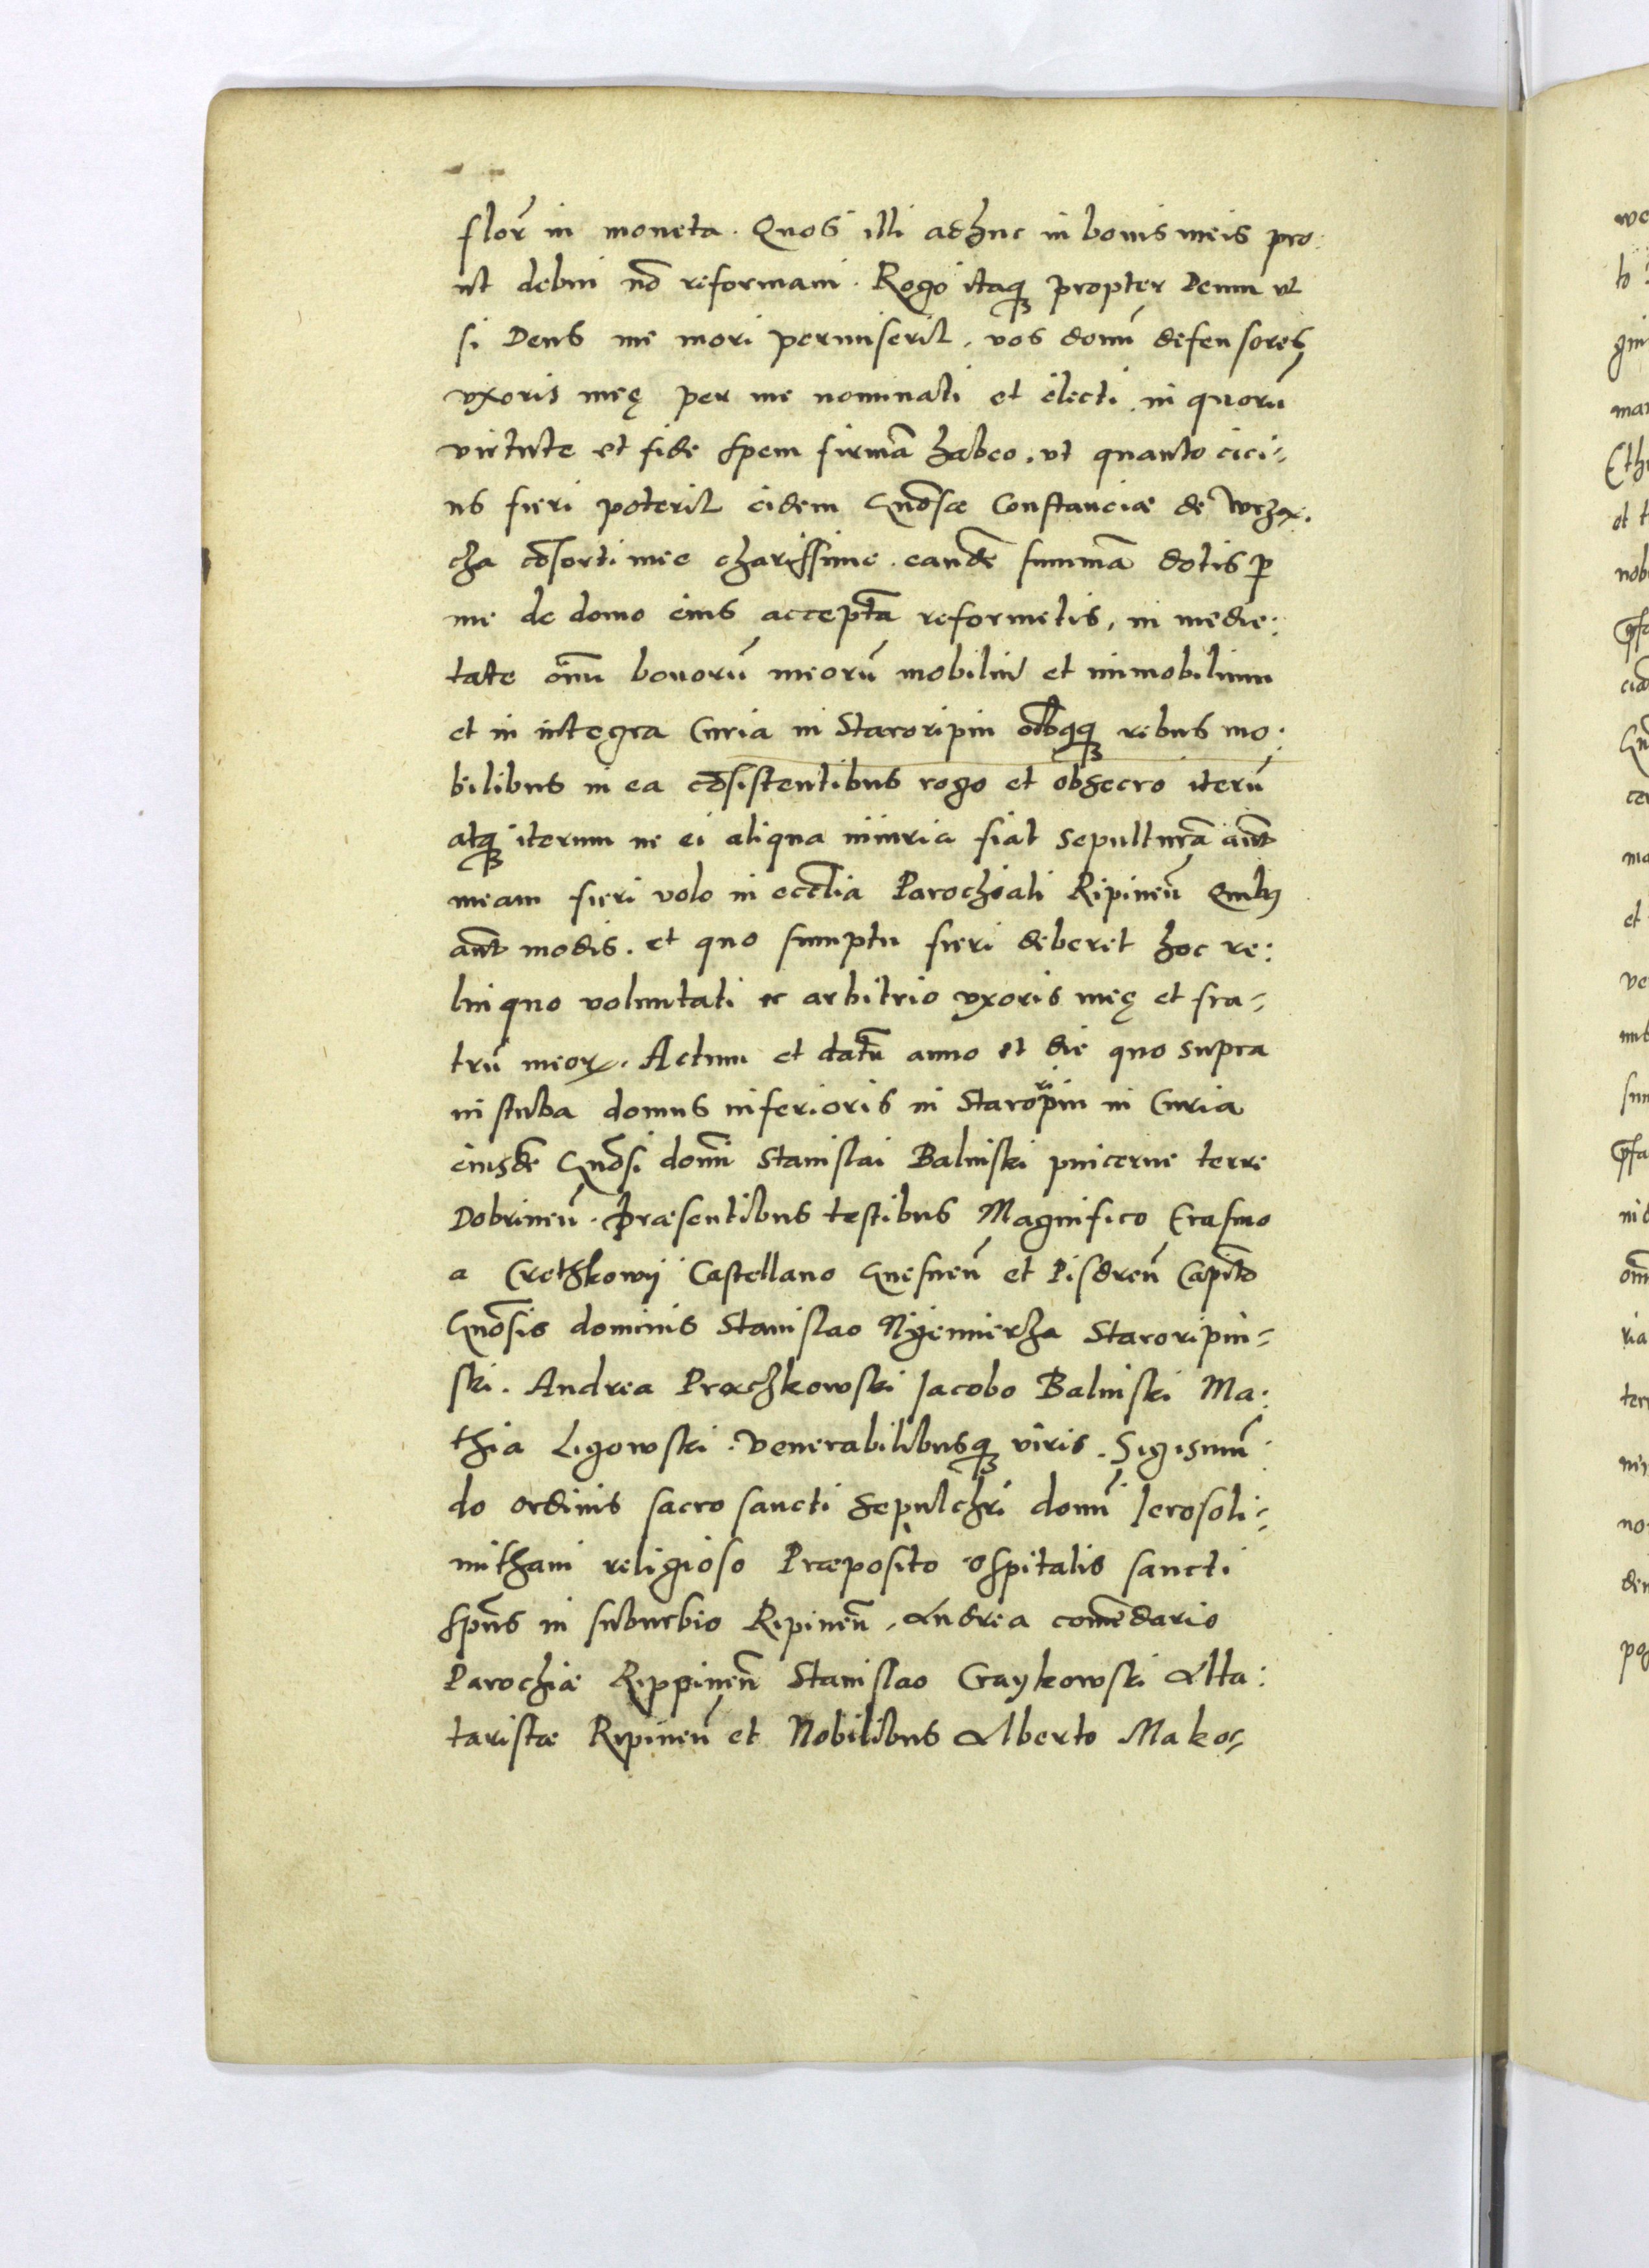 florē in moneta. Quos illi adhuc in bonis meis pro:
ut debui nō reformaui. Rogo itaq3 propter Deum ut
si Deus me mori permiserit. vos domī defensores
vxoris meę per me nominati et electi in quorū
virtute et fide spem firmā habeo. ut quanto cici-
us fieri poterit eidem Gnōsæ Constanciæ de
cōsorti mee charissime. eandē summā dotis p
me de domo eius acceptā reformetis, in medie:
tate oīm bonorū meorū mobiliū et immobilium
et in integra Curia in Staroripin rebus mo:
bilibus in ea cōsistentibus rogo et obsecro iterū
atq3 iterum ne ei aliqua iniuria fiat Sepulturā aūt
meam fieri volo in ecclīa Parochiali Ripineñ Quibus
aūt modis. et quo sumptu fieri deberet hoc re:
linquo voluntati et arbitrio vxoris meę et fra-
trū meoꝝ. Actum et datū anno et die quo supra
in stuba domus inferioris in Staroripin in Curia
eiusdē Gnōsi domī Stanislai Balinski pincerne terre
Dobrineñ. Præsentibus testibus Magnifico Erasmo
a Crethkowÿ Castellano Gnesneñ et Pisdreñ Capito
Gnōsis dominis Stanislao Nÿemierza Staroripin-
ski. Andrea Prochkowski Jacobo Balinski Ma:
thia Ligowski. Venerabilibusq3 viris. Sigismū
do ordinis sacro sancti Sepulchri domī Jerosoli-
mithani religioso Præposito Ospitalis sancti
Spūs in suburbio Ripineñ. Andrea comēdario
Parochiæ Rippineñ Stanislao Graykowski Alta:
taristæ Ripineñ et Nobilibus Alberto Mako-